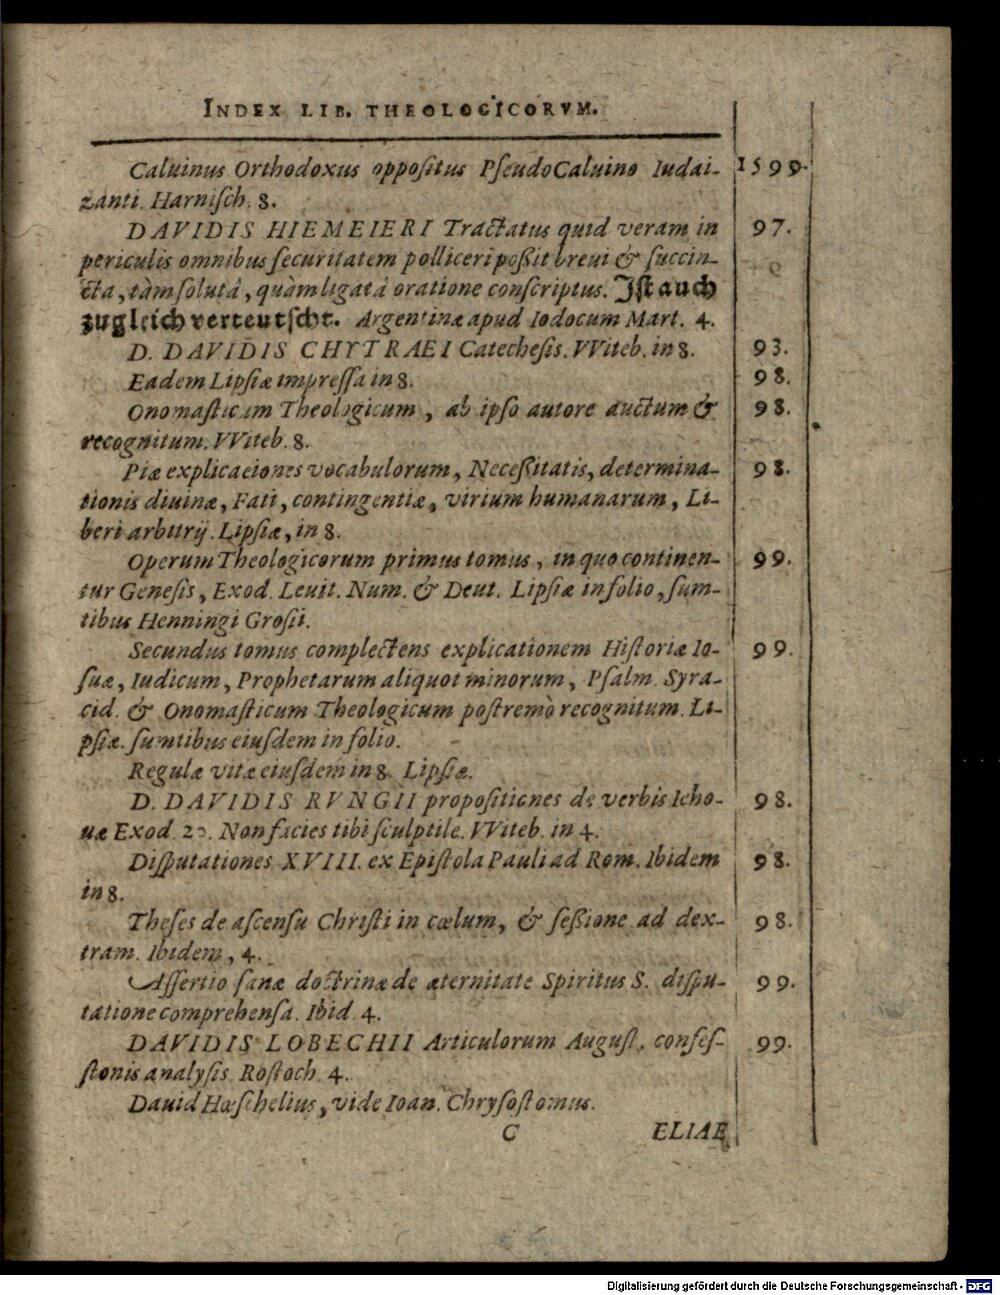 INDEX LIB. THEOLOGICORVM.
Caluinus Orthodoxus oppoſitus PſeudoCaluino Iudai- 1599.
zanti. Harniſch. 8.
DAVIDIS HIEMEIERI Tractatus quid veram in 97.
periculis omnibus ſecuritatem polliceri poßit breui & ſuccin-
cta, tàm ſolutâ, quàm ligatâ oratione conſcriptus. Iſt auch
zugleich verteutſcht. Argentinæ apud Iodocum Mart. 4.
D. DAVIDIS CHYTRAEI Catecheſis. VViteb. in 8. 93.
Eadem Lipſiæ impreſſa in 8. 98.
Onomaſticum Theologicum, ab ipſo autore auctum & 98.
recognitum. VViteb. 8.
Piæ explicaciones vocabulorum, Neceßitatis, determina- 98.
tionis diuinæ, Fati, contingentiæ, virium humanarum, Li-
beri arbitrij. Lipſiæ, in 8.
Operum Theologicorum primus tomus, in quo continen- 99.
tur Geneſis, Exod. Leuit. Num. & Deut. Lipſiæ in folio, ſum-
tibus Henningi Groſii.
Secundus tomus complectens explicationem Hiſtoriæ Io- 99.
ſuæ, Iudicum, Prophetarum aliquot minorum, Pſalm. Syra-
cid. & Onomaſticum Theologicum poſtremò recognitum. Li-
pſiæ. ſumtibus eiuſdem in folio.
Regulæ vitæ eiuſdem in 8. Lipſiæ.
D. DAVIDIS RVNGII propoſitiones de verbis Ieho- 98.
uæ Exod. 20. Non facies tibi ſculptile. VViteb. in 4.
Diſputationes XVIII. ex Epiſtola Pauli ad Rom. Ibidem 98.
in 8.
Theſes de aſcenſu Chriſti in cœlum, & ſeßione ad dex- 98.
tram. Ibidem, 4.
Aſſertio ſanæ doctrinæ de æternitate Spiritus S. diſpu- 99.
tatione comprehenſa. Ibid. 4.
DAVIDIS LOBECHII Articulorum Auguſt. confeſ- 99.
ſionis analyſis Roſtoch. 4.
Dauid Hœſchelius, vide Ioan. Chryſoſtomus.
C ELIAE
Digitalisierung gefördert durch die Deutsche Forschungsgemeinschaft - DFG